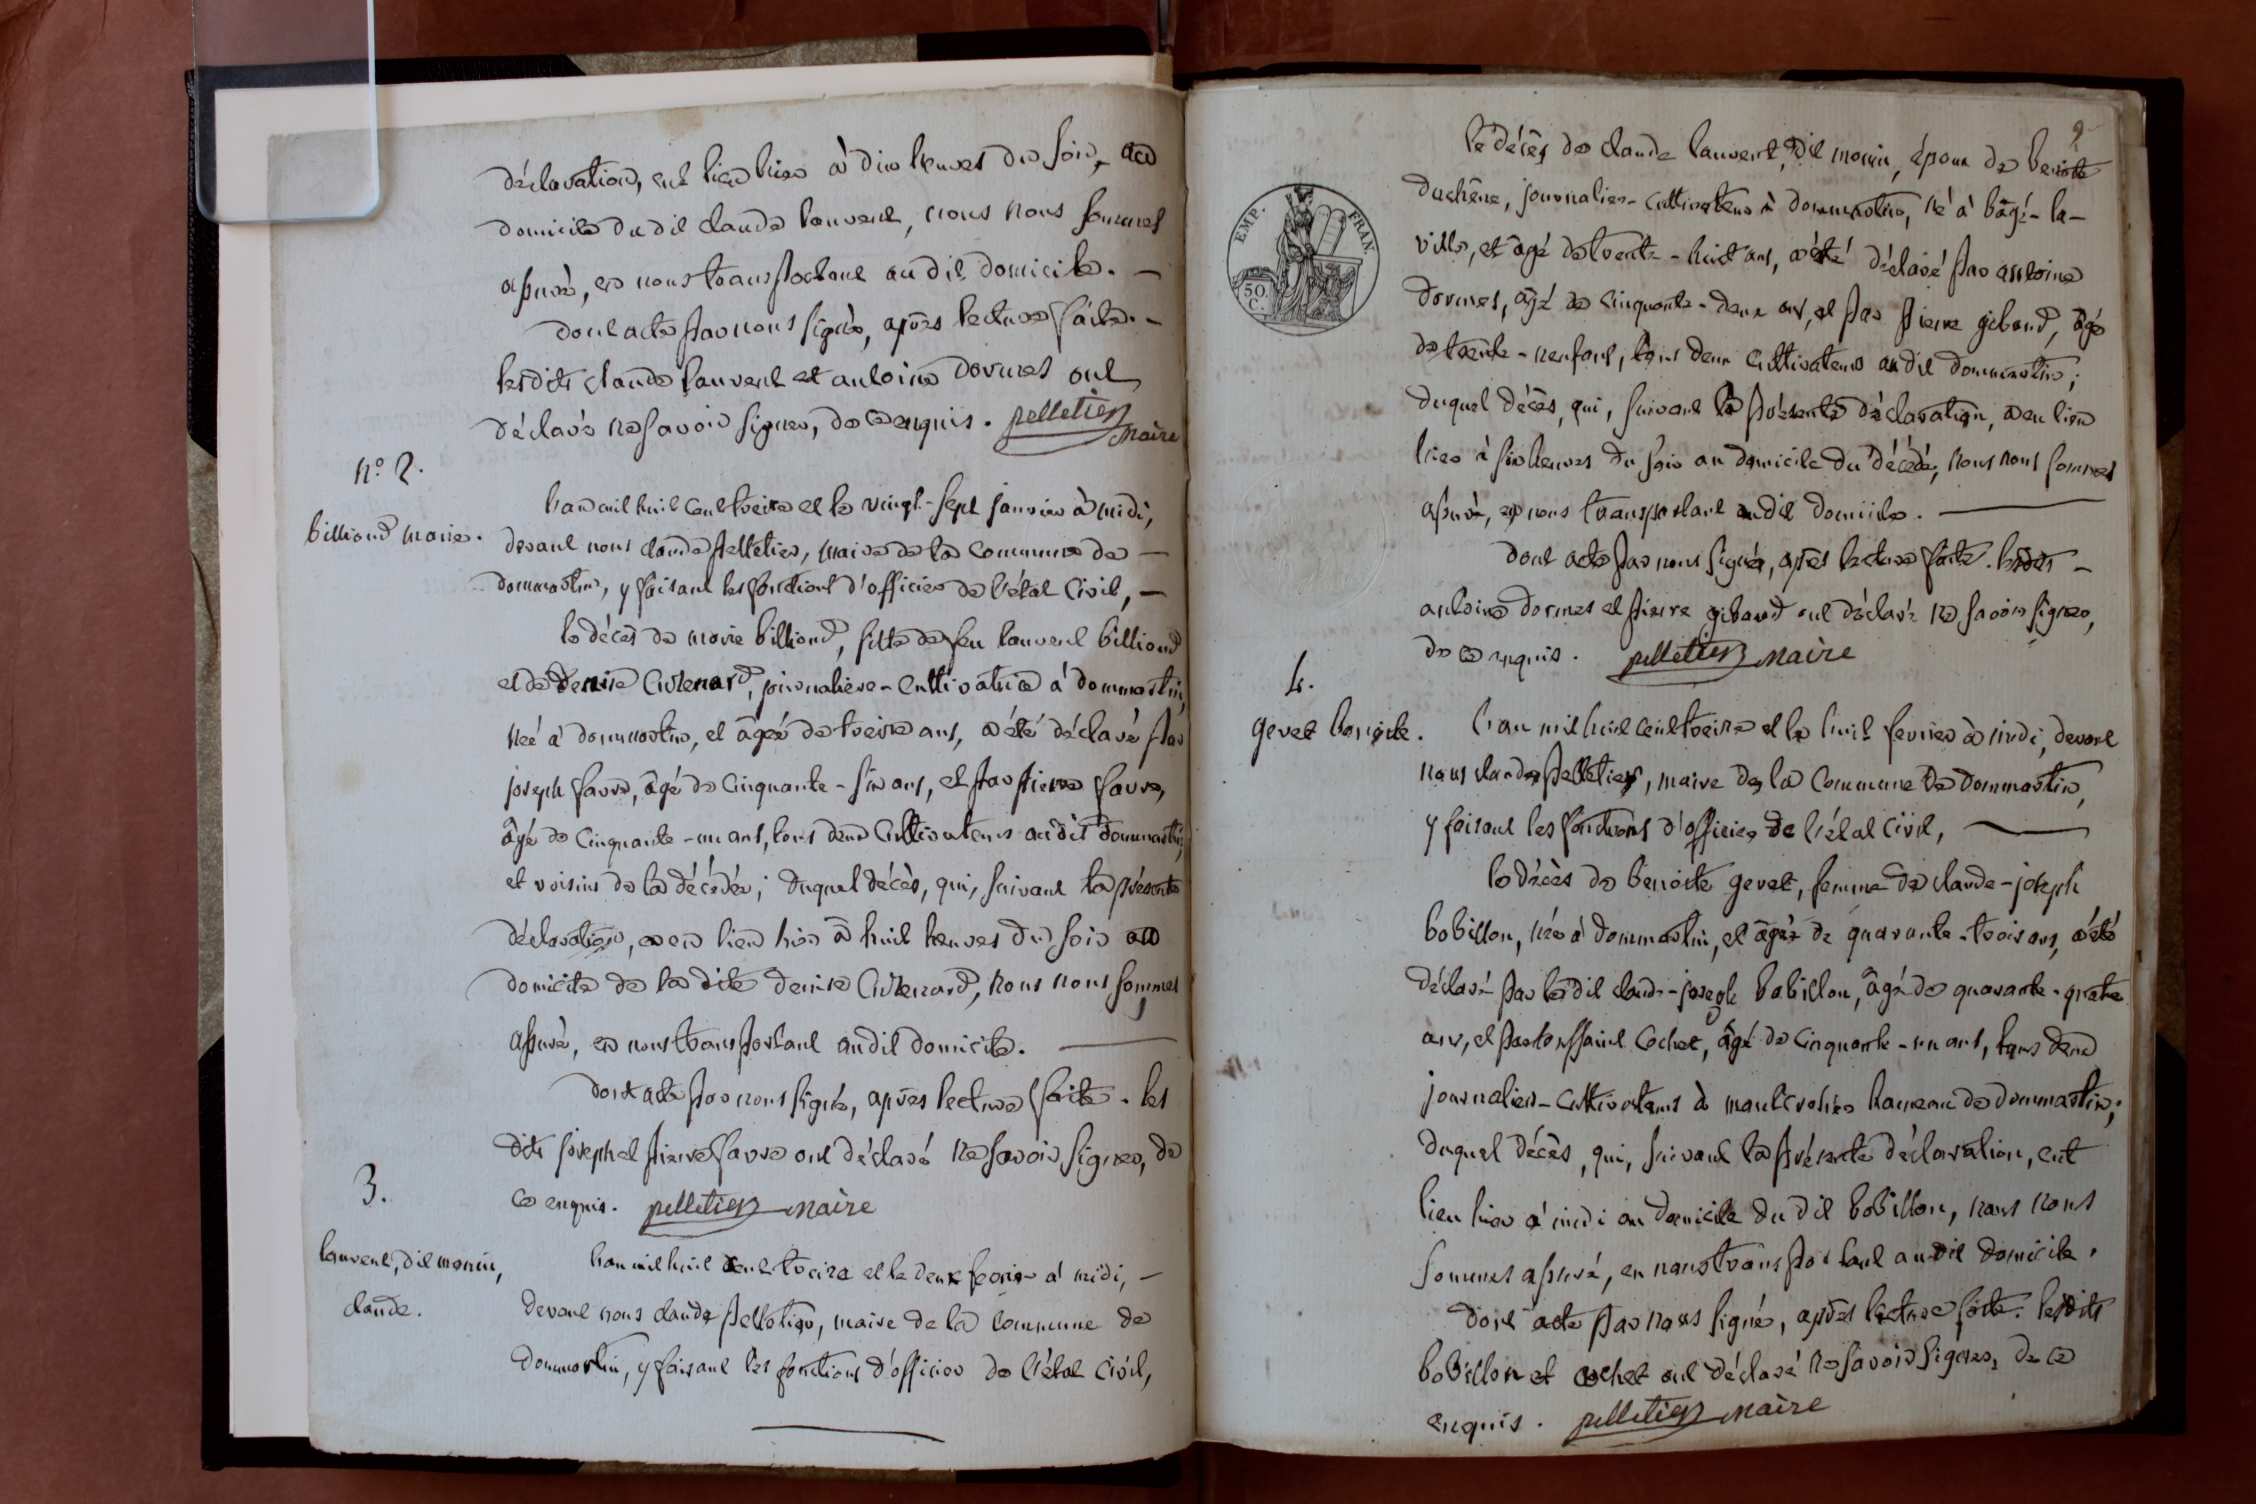 déclaration, eut lieu hier à dix heures du soir, au
domicile dudit claude lauvent, nous nous sommes
assuré, en nous transportant audit domicile. —
dont acte par nous signé, après lecture faite. —
lesdits claude lauvent et antoine dormes ont
déclaré ne savoir signer, de ce enquis. pelletier
maire
n.° 2.
billioud marie.
l'an mil huit cent treize et le vingt-sept janvier à midi,
devant nous claude pelletier, maire de la commune de —
dommartin, y faisant les fonctions d'officier de l'état civil, —
le décès de marie billioud, fille de feu lauvent billioud
et de denise curenard, journalière-cultivatrice à dommartin,
née à dommartin, et âgée de treize ans, a été déclaré par
joseph favre, âgé de cinquante-six ans, et par pierre favre,
âgé de cinquante-un ans, tous deux cultivateurs audit dommartin,
et voisins de la décédée; duquel décès, qui, suivant la présente
déclaration, a eu lieu hier à huit heures du soir au
domicile de la dite denise curenard, nous nous sommes
assuré, en nous transportant audit domicile. —
dont acte par nous signé, après lecture faite. les
dits joseph et pierre favre ont déclaré ne savoir signer, de
ce enquis. pelletier maire
3.
lauvent, dit morin,
claude.
l'an mil huit cent treize et le deux fevrier à midi, —
devant nous claude pelletier, maire de la commune de
dommartin, y faisant les fonctions d'officier de l'état civil,
2
le décès de claude lauvent, dit morin, époux de benoite
duchêne, journalier-cultivateur à dommartin, né à bâgé-la-
ville, et âgé de trente-huit ans, a été déclaré par antoine
dormes, âgé de cinquante-deux ans, et par pierre giboud, âgé
de trente-neuf ans, tous deux cultivateurs audit dommartin;
duquel décès, qui, suivant la présente déclaration, a eu lieu
hier à six heures du soir au domicile du décédé, nous nous sommes
assuré, en nous transportant audit domicile. —
dont acte par nous signé, après lecture faite. lesdits —
antoine dormes et pierre giboud ont déclaré ne savoir signer,
de ce enquis. pelletier maire
EMP. FRAN.
50.
C.
4.
gevet benoite.
l'an mil huit cent treize et le huit fevrier à midi, devant
nous claude pelletier, maire de la commune de dommartin,
y faisant les fonctions d'officier de l'état civil, —
le décès de benoite gevet, femme de claude-joseph
bobillon, née à dommartin, et âgée de quarante-trois ans, a été
déclaré par ledit claude-joseph bobillon, âgé de quarante-quatre
ans, et par toussaint cochet, âgé de cinquante-un ans, tous deux
journaliers-cultivateurs à hameau de dommartin;
duquel décès, qui, suivant la présente déclaration, eut
lieu hier à midi au domicile dudit bobillon, nous nous
sommes assuré, en nous transportant audit domicile.
dont acte par nous signé, après lecture faite. lesdits
bobillon et cochet ont déclaré ne savoir signer, de ce
enquis. pelletier maire